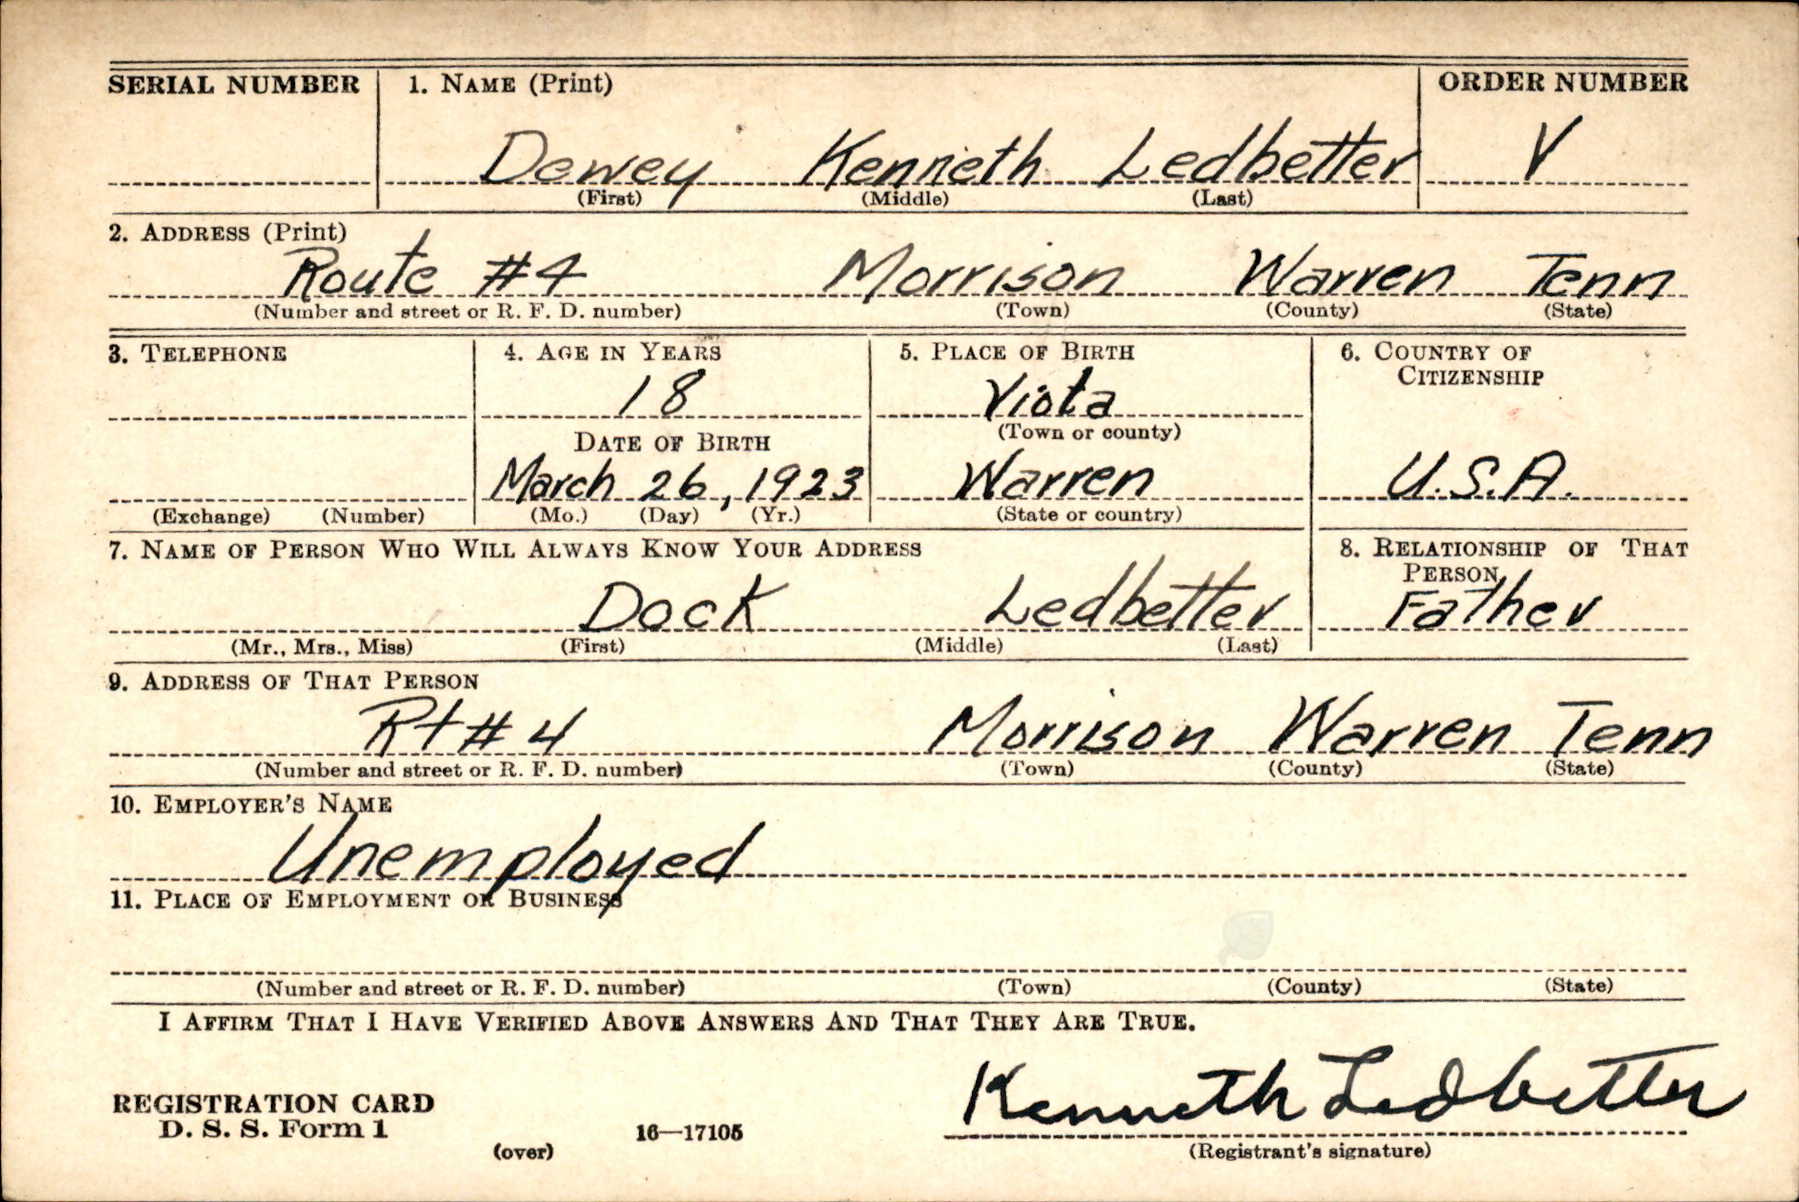 SERIAL NUMBER 1. NAME (Print) ORDER NUMBER
Dewey Kenneth Ledbetter V
(First) (Middle) (Last)
2. ADDRESS (Print)
Route #4 Morrison Warren Tenn
(Number and street or R. F. D. number) (Town) (County) (State)
3. TELEPHONE 4. AGE IN YEARS 5. PLACE OF BIRTH 6. COUNTRY OF
CITIZENSHIP
18 Viola
DATE OF BIRTH (Town or county)
March 26, 1923 Warren U.S.A.
(Exchange) (Number) (Mo.) (Day) (Yr.) (State or country)
7. NAME OF PERSON WHO WILL ALWAYS KNOW YOUR ADDRESS 8. RELATIONSHIP OF THAT
PERSON
Dock Ledbetter Father
(Mr., Mrs., Miss) (First) (Middle) (Last)
9. ADDRESS OF THAT PERSON
Rt #4 Morrison Warren Tenn
(Number and street or R. F. D. number) (Town) (County) (State)
10. EMPLOYER'S NAME
Unemployed
11. PLACE OF EMPLOYMENT OR BUSINESS
(Number and street or R. F. D. number) (Town) (County) (State)
I AFFIRM THAT I HAVE VERIFIED ABOVE ANSWERS AND THAT THEY ARE TRUE.
Kenneth Ledbetter
REGISTRATION CARD
D. S. S. Form 1 16—17105
(over) (Registrant's signature)